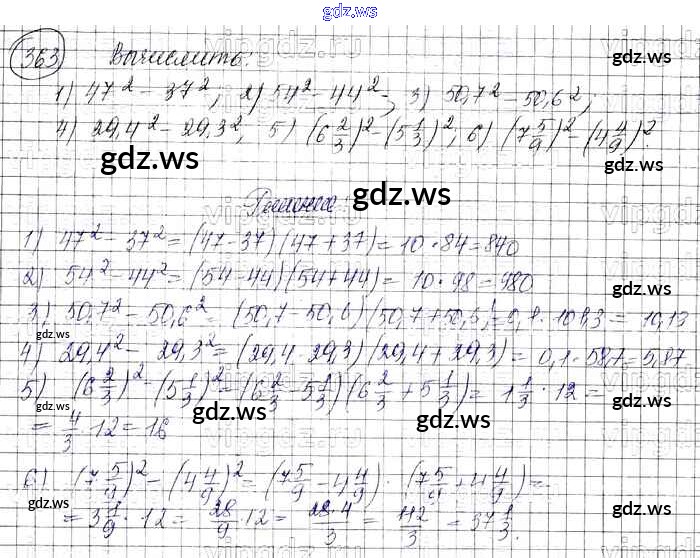 gdz.ws
363 Вычислить:
1) 47² - 37²; 2) 54² - 44²; 3) 50,7² - 50,6²;
4) 29,4² - 29,3²; 5) (6 2/3)² - (5 1/3)²; 6) (7 5/9)² - (4 4/9)².
gdz.ws gdz.ws
gdz.ws
1) 47² - 37² = (47-37)(47+37) = 10·84 = 840
2) 54² - 44² = (54-44)(54+44) = 10·98 = 980
gdz.ws
3) 50,7² - 50,6² = (50,7 - 50,6)(50,7+50,6) = 0,1·101,3 = 10,13
gdz.ws
4) 29,4² - 29,3² = (29,4 - 29,3)(29,4 + 29,3) = 0,1·58,7 = 5,87
5) (6 2/3)² - (5 1/3)² = (6 2/3 - 5 1/3)(6 2/3 + 5 1/3) = 1 1/3 · 12 =
gdz.ws gdz.ws gdz.ws gdz.ws
= 4/3 · 12 = 16
6) (7 5/9)² - (4 4/9)² = (7 5/9 - 4 4/9) · (7 5/9 + 4 4/9) =
gdz.ws gdz.ws gdz.ws gdz.ws
= 3 1/9 · 12 = 28/9 · 12 = 28·4/3 = 112/3 = 37 1/3.